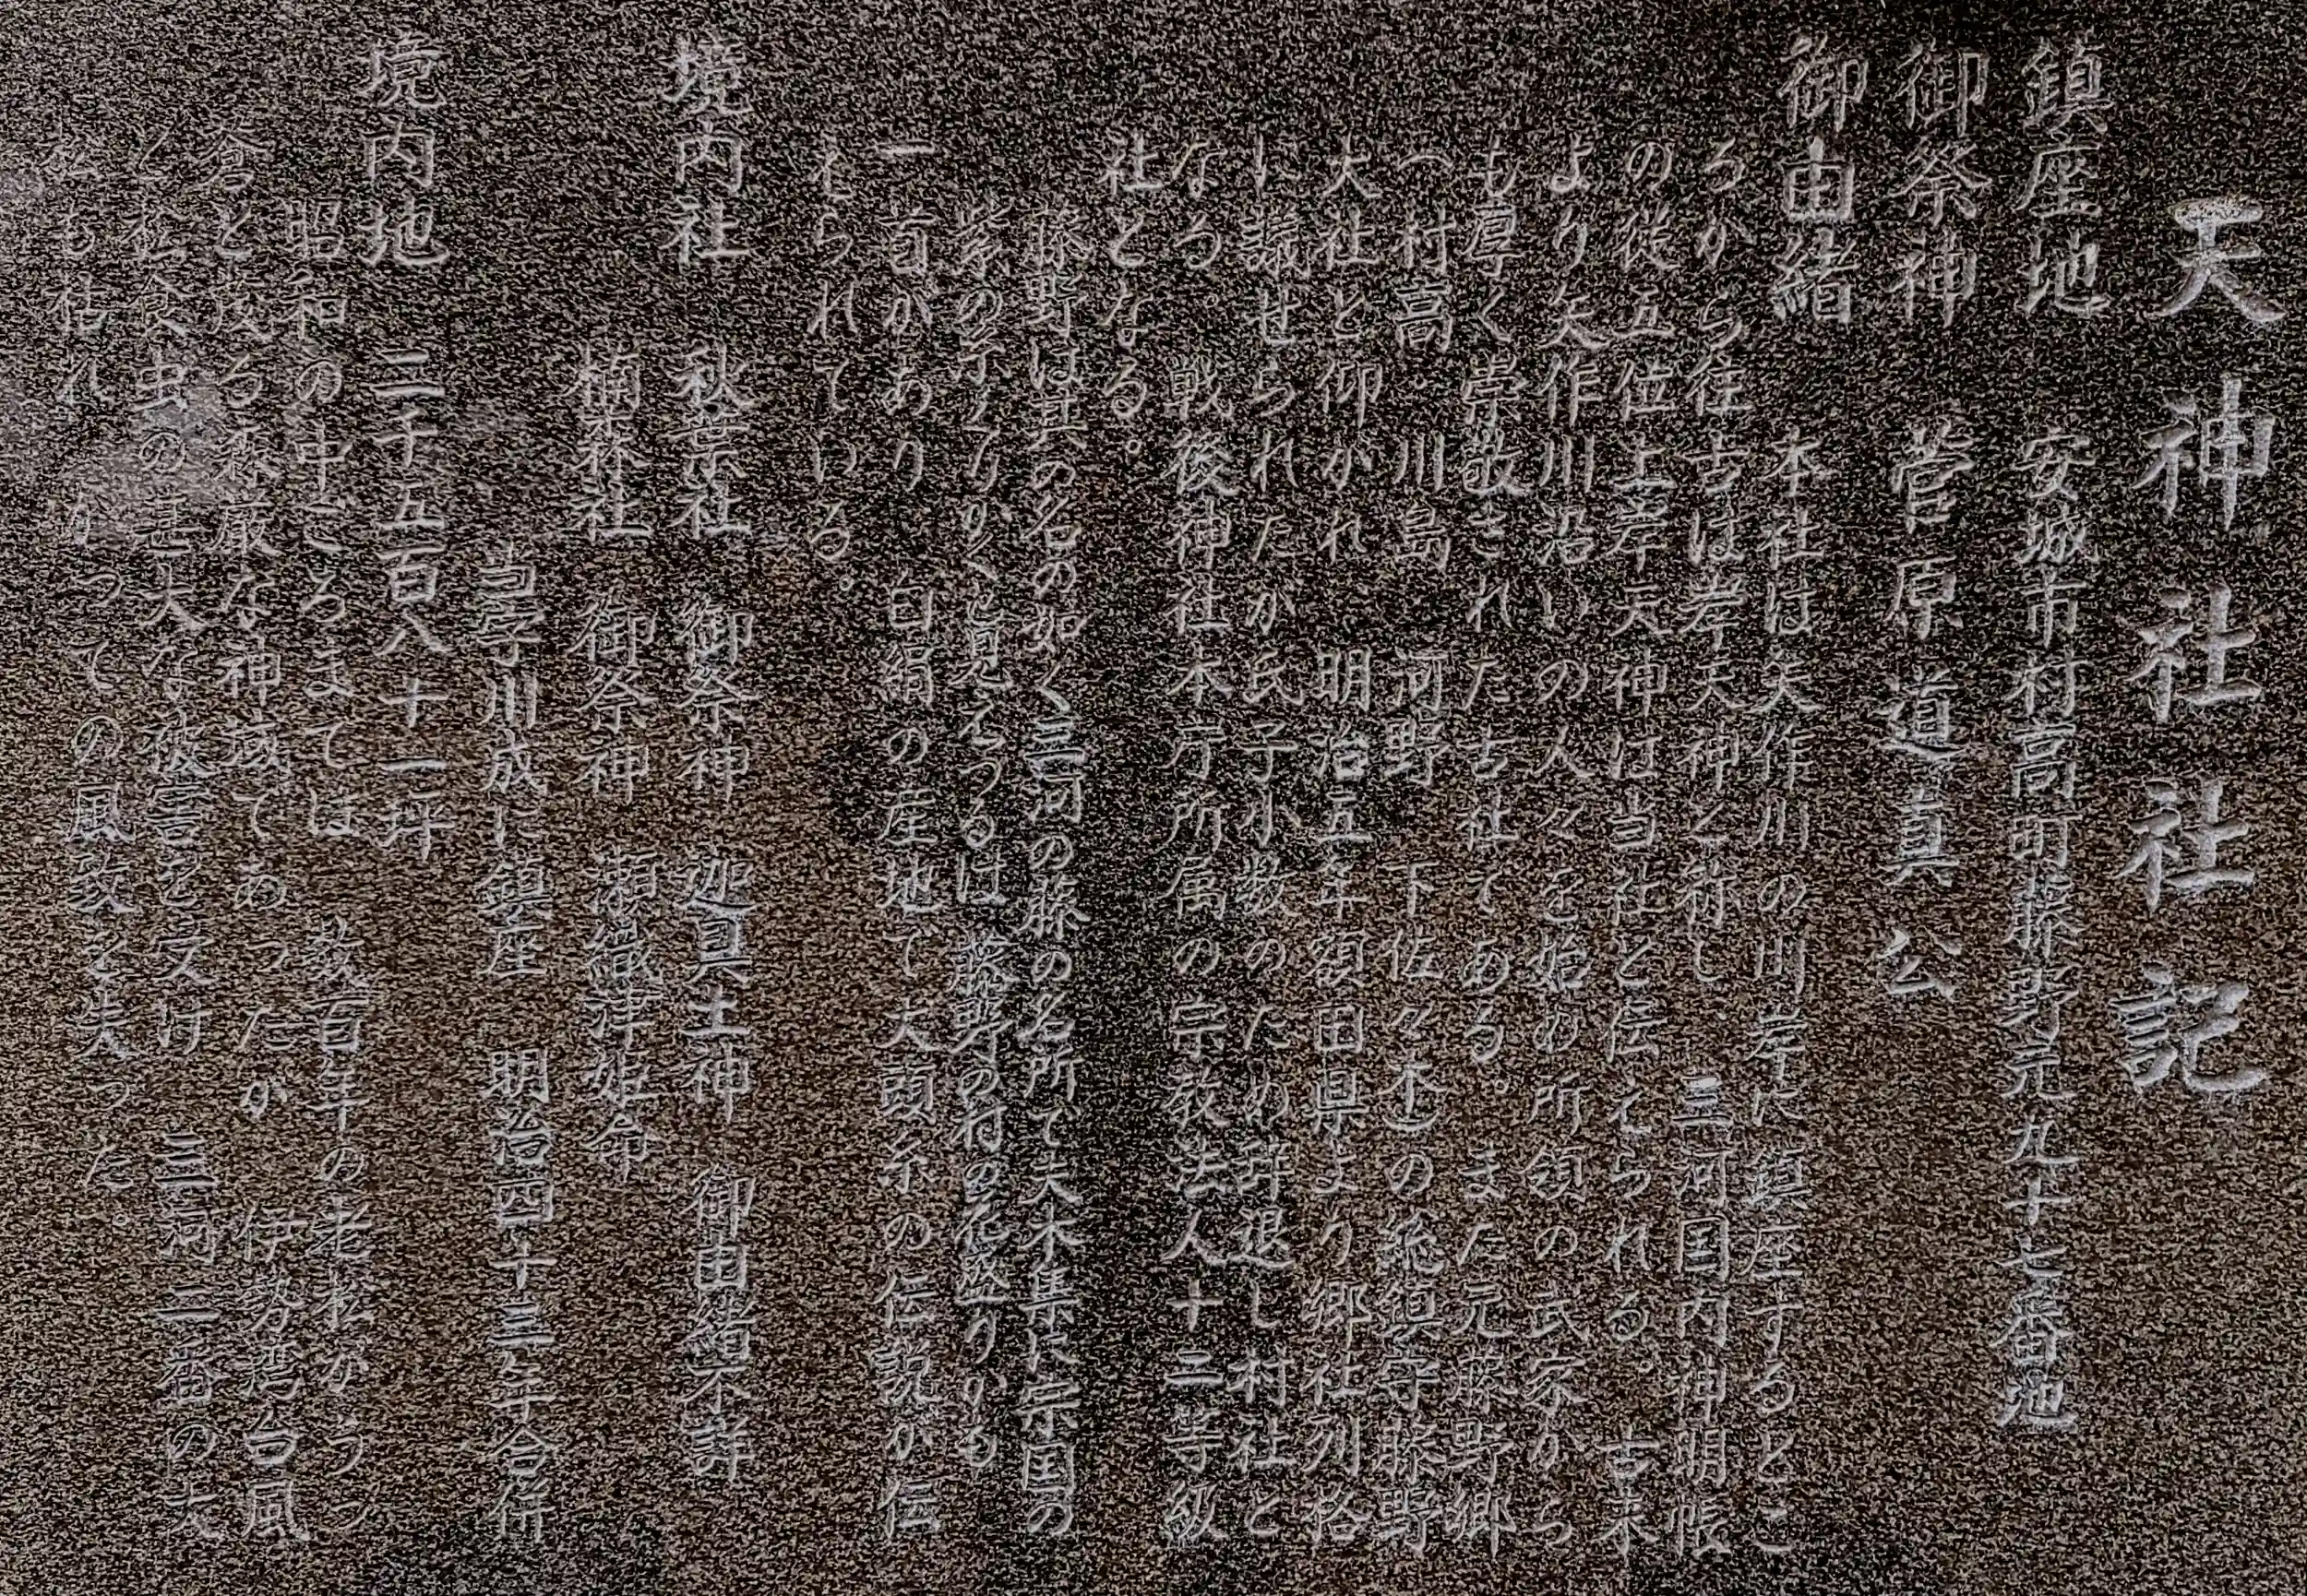 天神社社記
鎮座地　安城市村高町藤野元九十七番地
御祭神　菅原道真公
御由緒　本社は矢作川の川岸に鎮座するとこ
ろから往古は岸天神と称し　三河国内神明帳
の従五位上岸天神は当社と伝えられる。古来
より矢作川沿いの人々を始め所領の武家から
も厚く崇敬された古社である。また元藤野郷
（村高　川島　河野　下佐々木）の総鎮守藤野
大社と仰がれ　明治五年額田県より郷社列格
に議せられたが氏子小数のため辞退し村社と
なる。戦後神社本庁所属の宗教法人十二等級
社となる。
藤野は其の名の如く三河の藤の名所で夫木集に宗国の
紫の　　　　　見えつるは藤野の村の花盛りかも
一首があり　白絹の産地で犬頭糸の伝説が伝
えられている。
境内社　秋葉社　御祭神　迦具土神　御由緒不詳
楠森社　御祭神　瀬織津姫命
当字川成に鎮座　明治四十三年合併
境内地　二千五百八十一坪
昭和の中ごろまでは　数百年の老松がうっ
蒼と茂る森厳な神域であったが　伊勢湾台風
と松食虫の甚大な被害を受け　三河二番の大
松も枯れ　かっての風致を失った。